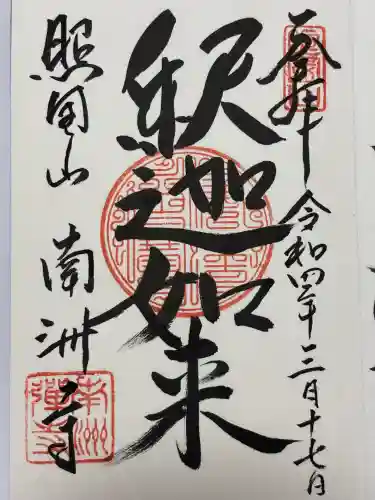 奉拝
令和四年三月十七日
釈迦如来
照国山
南洲寺